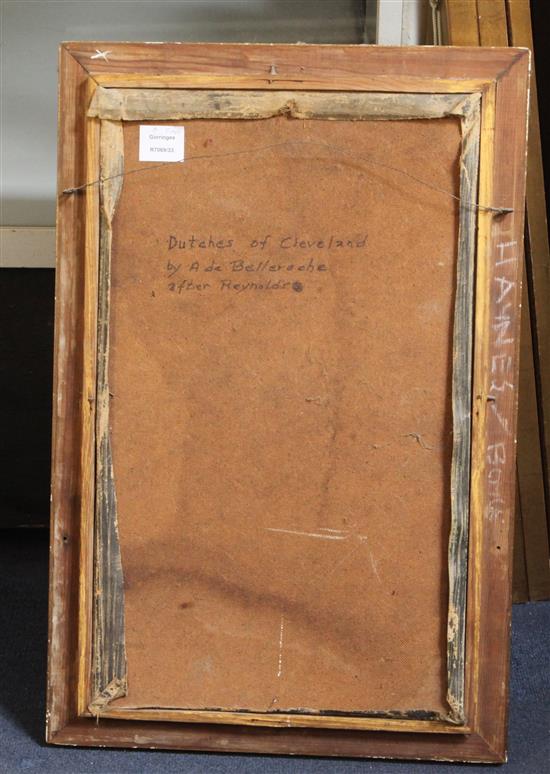 Gorringes
R7069/23
Dutches of Cleveland
by A de Belleroche
after Reynolds
HAINES